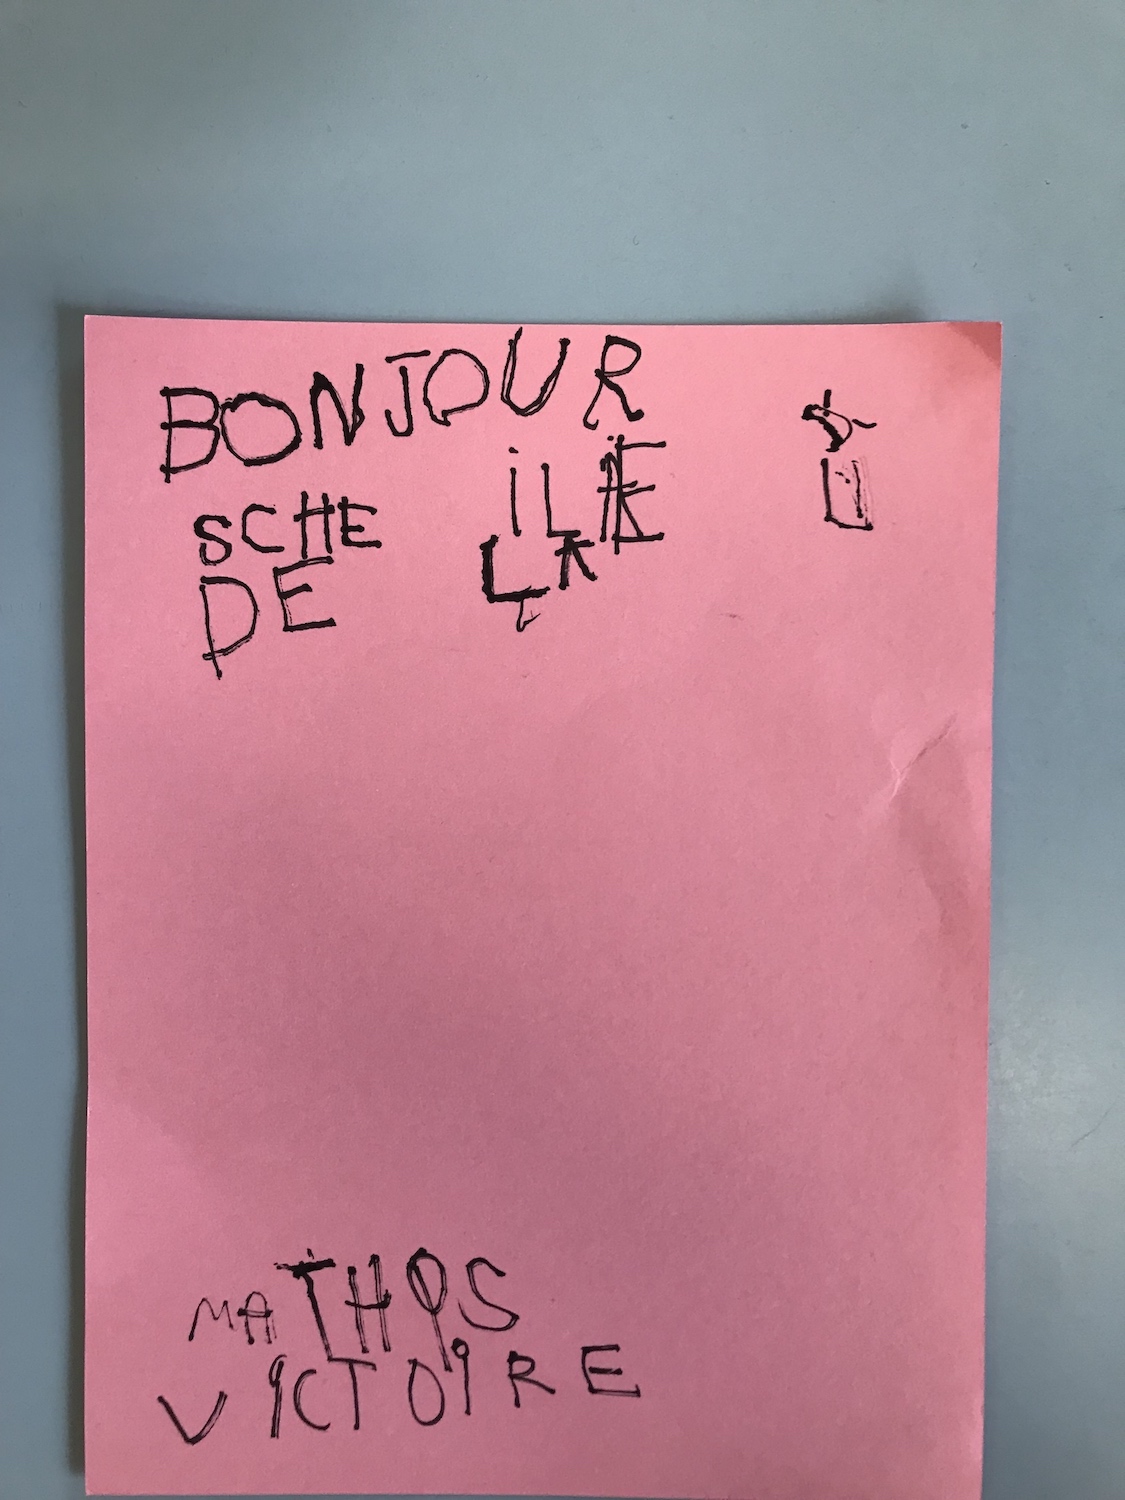 BONJOUR
SCHE
DE
MATHiS
ViCTOiRE